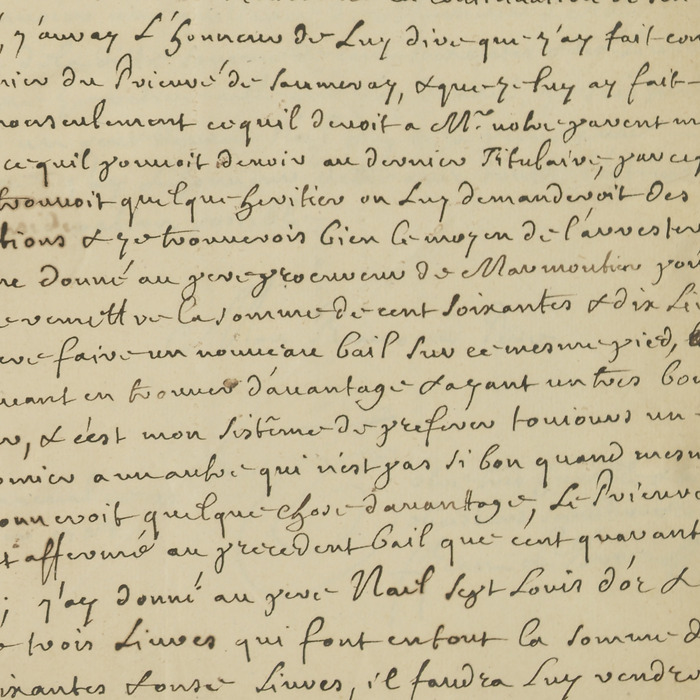 la continuation de son
, j'auray L'honneur de Luy dire que j'ay fait con
mier du Prieuré de Saumeray, & que je luy ay fait
nonseulement ce quil devoit a Mr. nostre parent m
ce quil pouvoit devoir au dernier Titulaire, parceq
trouvoit quelque heritier on Luy demanderoit des
tions & je trouverois bien le moyen de l'arrester
ne donné au pere procureur de Marmoutier pou
e remettre la somme de cent soixantes & dix Li
ere faire un nouveau bail sur ce mesme pied,
uant en trouver d'avantage & ayant un tres bo
r, & c'est mon sistême de preferer toujours un
rmier a un autre qui n'est pas si bon quand mesm
onneroit quelque chose d'avantage, Le Prieuré
t affermé au precedent bail que cent quarant
; j'ay donné au pere Nail sept Louis d'or &
trois Livres qui font entout la somme d
ixantes & onse Livres, il faudra Luy rendre